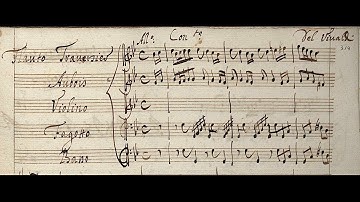 All.º Con.to Del Vivaldi
Flauto Traversier
Aubois
Violino
Fagotto
Basso